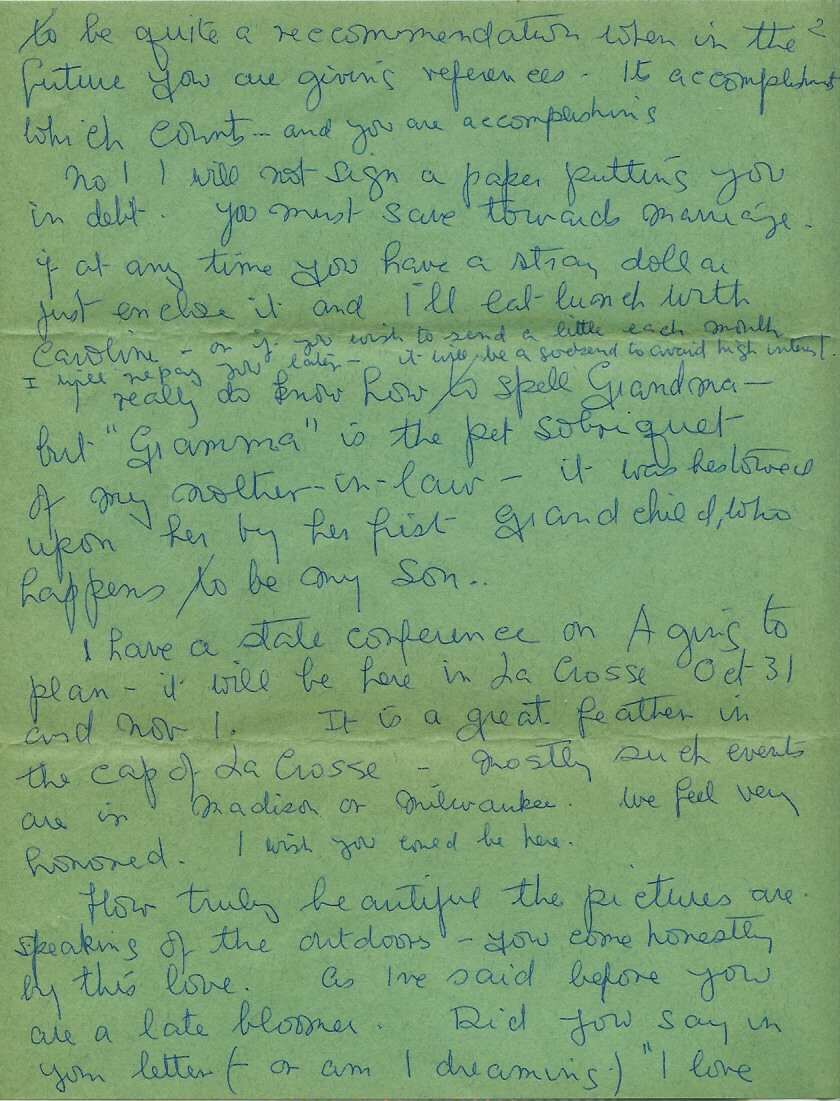 2
to be quite a reccommendation when in the
future you are giving references - It accomplishment
which counts - and you are accomplishing
No! I will not sign a paper putting you
in debt. You must save towards marriage.
if at any time you have a stray dollar
just enclose it and I'll eat lunch with
Caroline - or if you wish to send a little each month
I will repay you later - it will be a godsend to avoid high interest.
I really do know how to spell Grandma -
but "Gramma" is the pet sobriquet
of my mother-in-law - it was bestowed
upon her by her first grandchild, who
happens to be my son..
I have a state conference on Aging to
plan - it will be here in La Crosse Oct 31
and Nov 1. It is a great feather in
the cap of La Crosse - mostly such events
are in Madison or Milwaukee. We feel very
honored. I wish you could be here.
How truly beautiful the pictures are.
speaking of the outdoors - you come honestly
by this love. As I've said before you
are a late bloomer. Did you say in
your letter (- or am I dreaming.) "I love